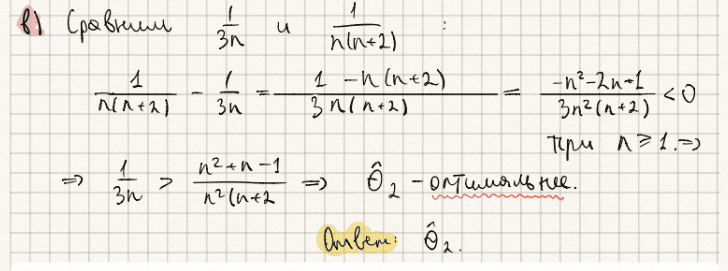 в) Сравним 1/3n и 1/n(n+2) :
1/n(n+2) - 1/3n = 1 - n(n+2)/3n(n+2) = -n²-2n+1/3n²(n+2) < 0
при n ≥ 1. ⇒
⇒ 1/3n > n²+n-1/n²(n+2 ⇒ θ̂₂ - оптимальнее.
Ответ: θ̂₂.